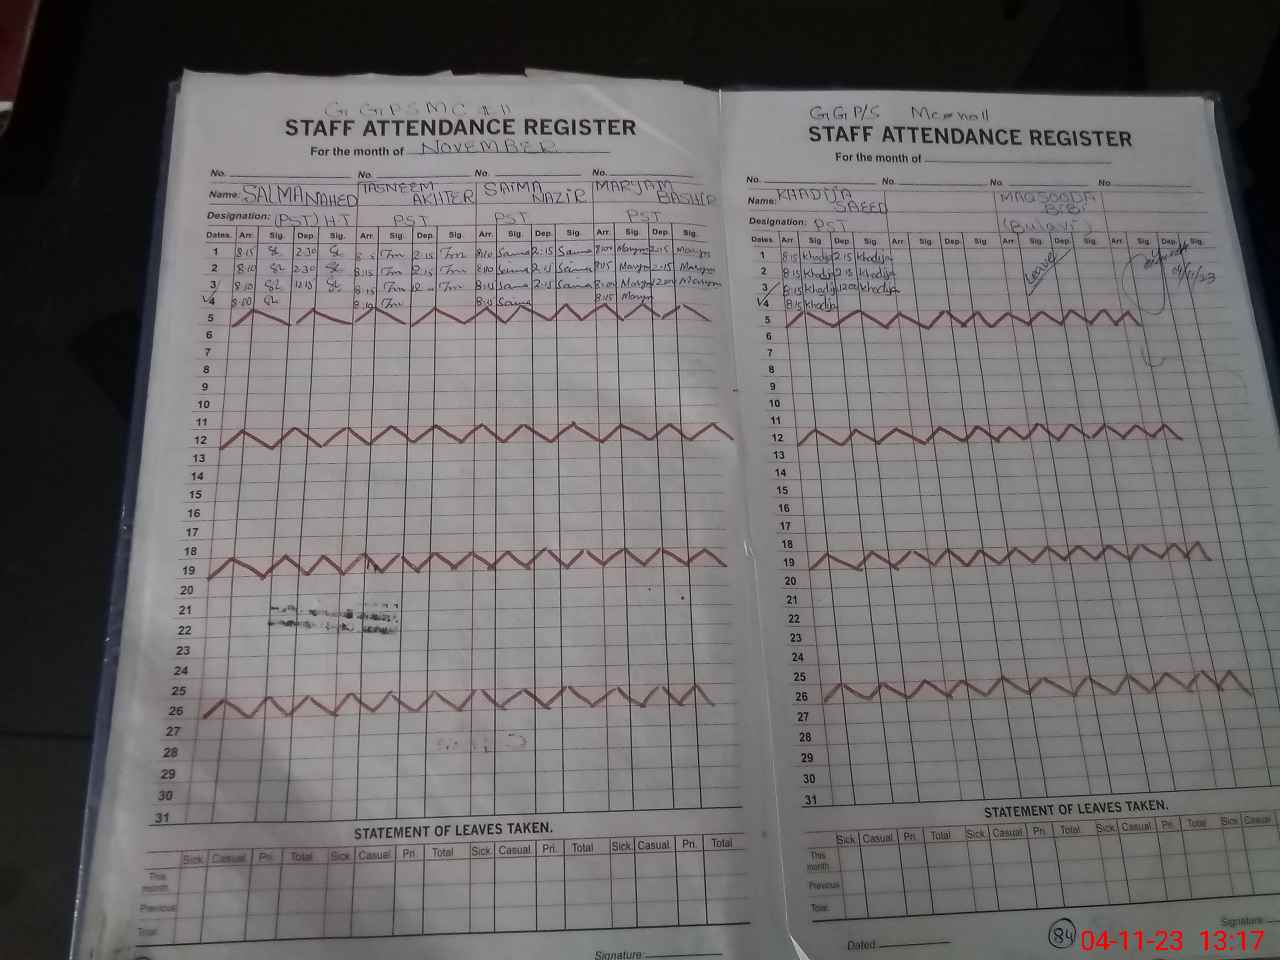 STAFF ATTENDANCE REGISTER
For the month of NOVEMBER
No. No. No. No.
Name: SALMA NAHED TASNEEM AKHTER SAIMA NAZIR MARYAM BASHIR
Designation: (PST) H.T PST PST PST
Dates. Arr. Sig. Dep. Sig. Arr. Sig. Dep. Sig. Arr. Sig. Dep. Sig. Arr. Sig. Dep. Sig.
1 8:15 2:30 2:15 8:10 Saima 2:15 Saima Maryam 2:15 Maryam
2 8:10 2:30 8:15 2:15 8:10 Saima 2:15 Saima 8:15 Maryam 2:15 Maryam
3 8:10 12:15 8:15 Saima 2:15 Saima Maryam Maryam
4 8:00 8:10 8:10 Saima 8:15 Maryam
5
6
7
8
9
10
11
12
13
14
15
16
17
18
19
20
21
22
23
24
25
26
27
28
29
30
31
STATEMENT OF LEAVES TAKEN.
Sick Casual Pri. Total Sick Casual Pri. Total Sick Casual Pri. Total Sick Casual Pri. Total
This month
Previous
Total
Signature:
GGP/S
STAFF ATTENDANCE REGISTER
For the month of
No. No. No. No.
Name: KHADIJA SAEED MAQSOODA BIBI
Designation: PST
Dates. Arr. Sig Dep. Sig. Arr. Sig. Dep. Sig. Arr Sig. Dep. Sig. Arr. Sig. Dep. Sig.
1 8:15 Khadija 2:15 Khadija Leave
2 8:15 Khadija 2:15 Khadija
3 8:15 Khadija 12:00 Khadija
4 8:15 Khadija
5
6
7
8
9
10
11
12
13
14
15
16
17
18
19
20
21
22
23
24
25
26
27
28
29
30
31
STATEMENT OF LEAVES TAKEN.
Sick Casual Pri. Total Sick Casual Pri. Total Sick Casual Pri. Total Sick Casual
This month
Previous
Total
Dated Signature
84
04-11-23 13:17